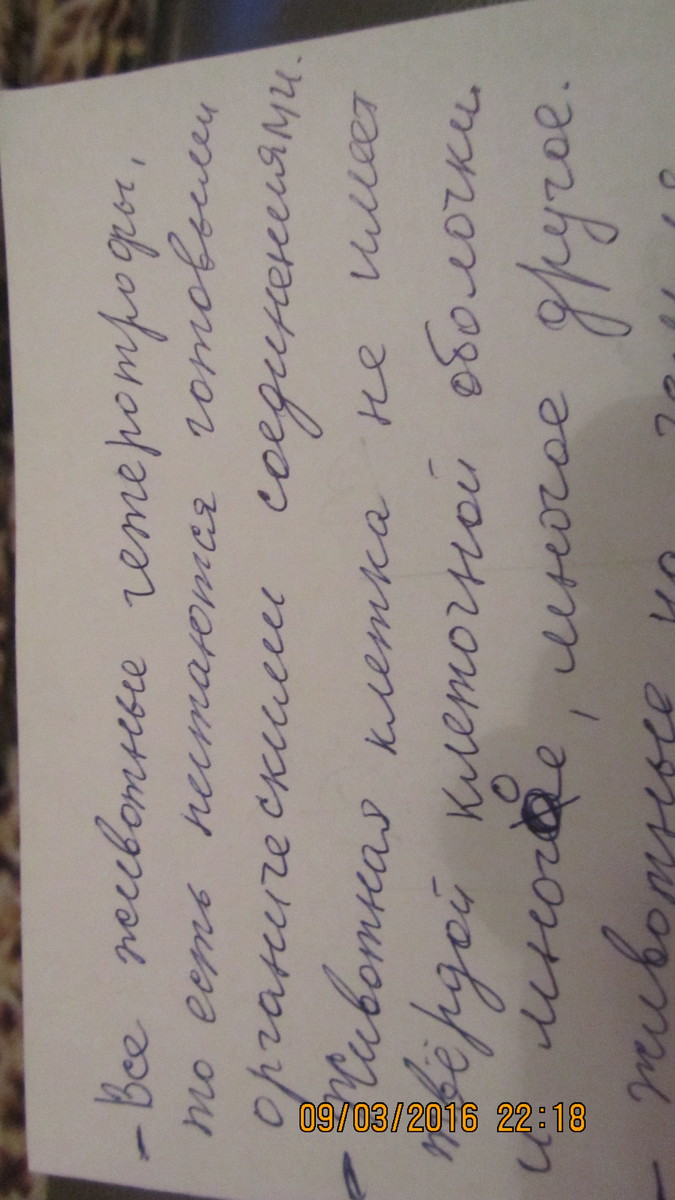 - Все животные гетеротрофы,
то есть питаются готовыми
органическими соединениями.
- Животная клетка не имеет
твёрдой клеточной оболочки
и многое, многое другое.
- животные на
09/03/2016 22:18